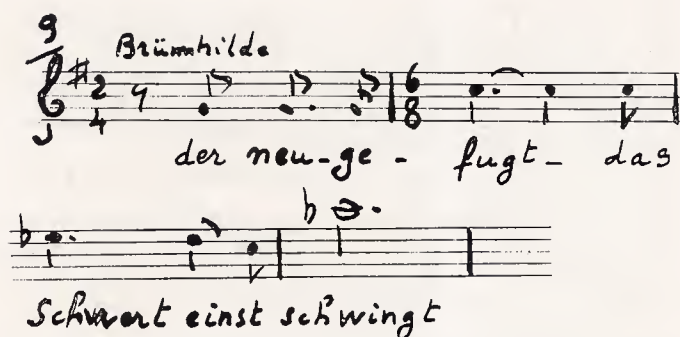 9
Brünnhilde
2 4 6 8
der neu-ge- fugt- das
Schwert einst schwingt